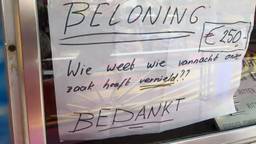 BELONING
€ 250,-
Wie weet wie vannacht onze
zaak heeft vernield??
BEDANKT